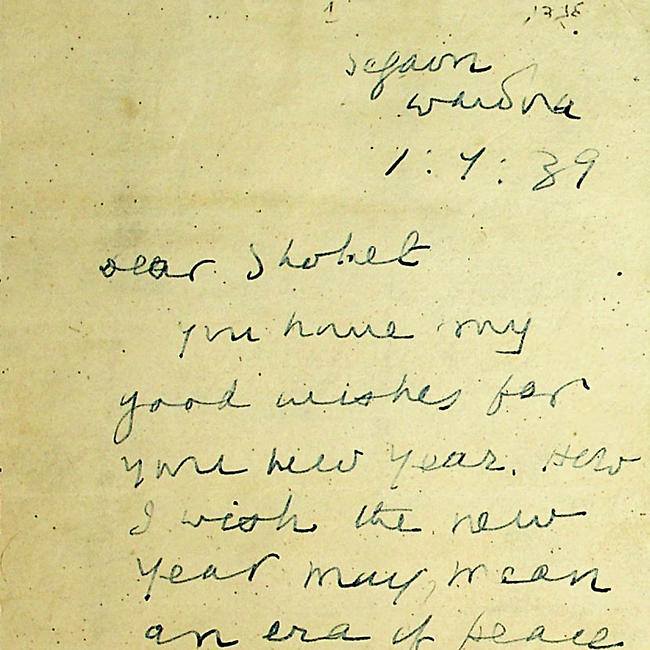 1
Segaon
Wardha
1 : 9 : 39
Dear Shohet
You have my
good wishes for
your new year. How
I wish the new
year may mean
an era of peace